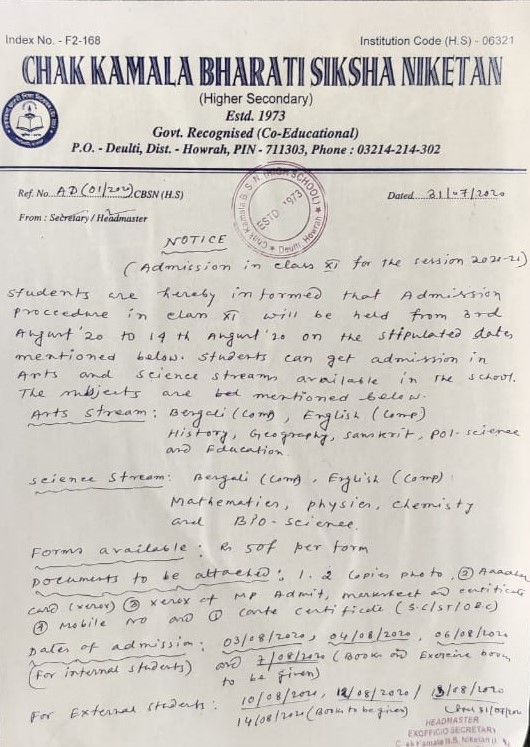 Index No. - F2-168 Institution Code (H.S) - 06321
CHAK KAMALA BHARATI SIKSHA NIKETAN
(Higher Secondary)
Estd. 1973
Govt. Recognised (Co-Educational)
P.O. - Deulti, Dist. - Howrah, PIN - 711303, Phone : 03214-214-302
Ref. No. AD(01/20)CBSN (H.S) Dated 31/07/2020
From : Secretary / Headmaster
Chak Kamala B. S. N. (HIGH SCHOOL) ★ Deulti, Howrah ★
ESTD 1973
NOTICE
(Admission in class XI for the session 2020-21)
Students are hereby informed that Admission
proceedure in class XI will be held from 3rd
August '20 to 14th August '20 on the stipulated dates
mentioned below. Students can get admission in
Arts and science streams available in the school.
The subjects are mentioned below.
Arts Stream : Bengali (Comp), English (Comp)
History, Geography, Sanskrit, Pol-science
and Education.
Science Stream : Bengali (Comp), English (Comp)
Mathematics, physics, chemisty
and Bio-science.
Forms available : Rs 50/- per form
Documents to be attached : 1. 2 copies photo, ②
card (xerox) ③ xerox of MP Admit, marksheet and certificate
④ Mobile NO and ⑤ Caste certificate (SC/ST/OBC)
Dates of admission : 03/08/2020, 04/08/2020, 06/08/2020
(For internal students) and 7/08/2020 (Books and Exercise books
to be given)
For External students : 10/08/2020, 12/08/2020 / 13/08/2020
14/08/2020 (Books to be given)
31/07/2020
HEADMASTER
EXOFFICIO SECRETARY
Chak Kamala B.S. Niketan